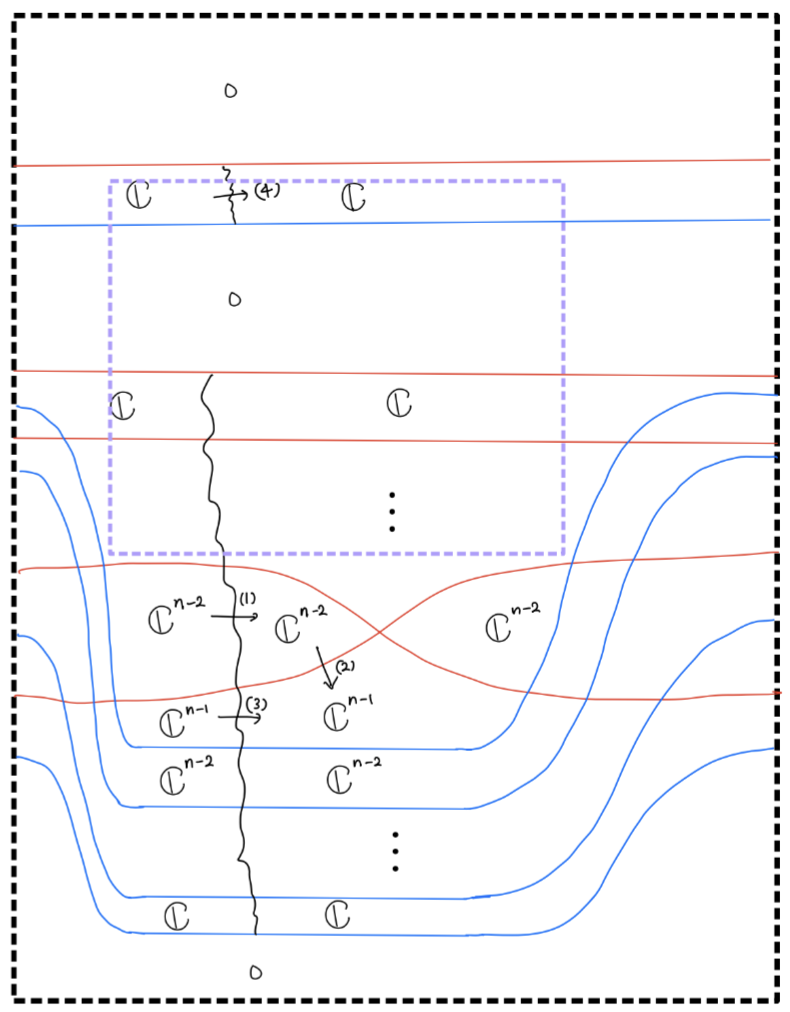 0
ℂ (4) ℂ
0
ℂ ℂ
⋮
ℂⁿ⁻² (1) ℂⁿ⁻² ℂⁿ⁻²
(2)
ℂⁿ⁻¹ (3) ℂⁿ⁻¹
ℂⁿ⁻² ℂⁿ⁻²
⋮
ℂ ℂ
0